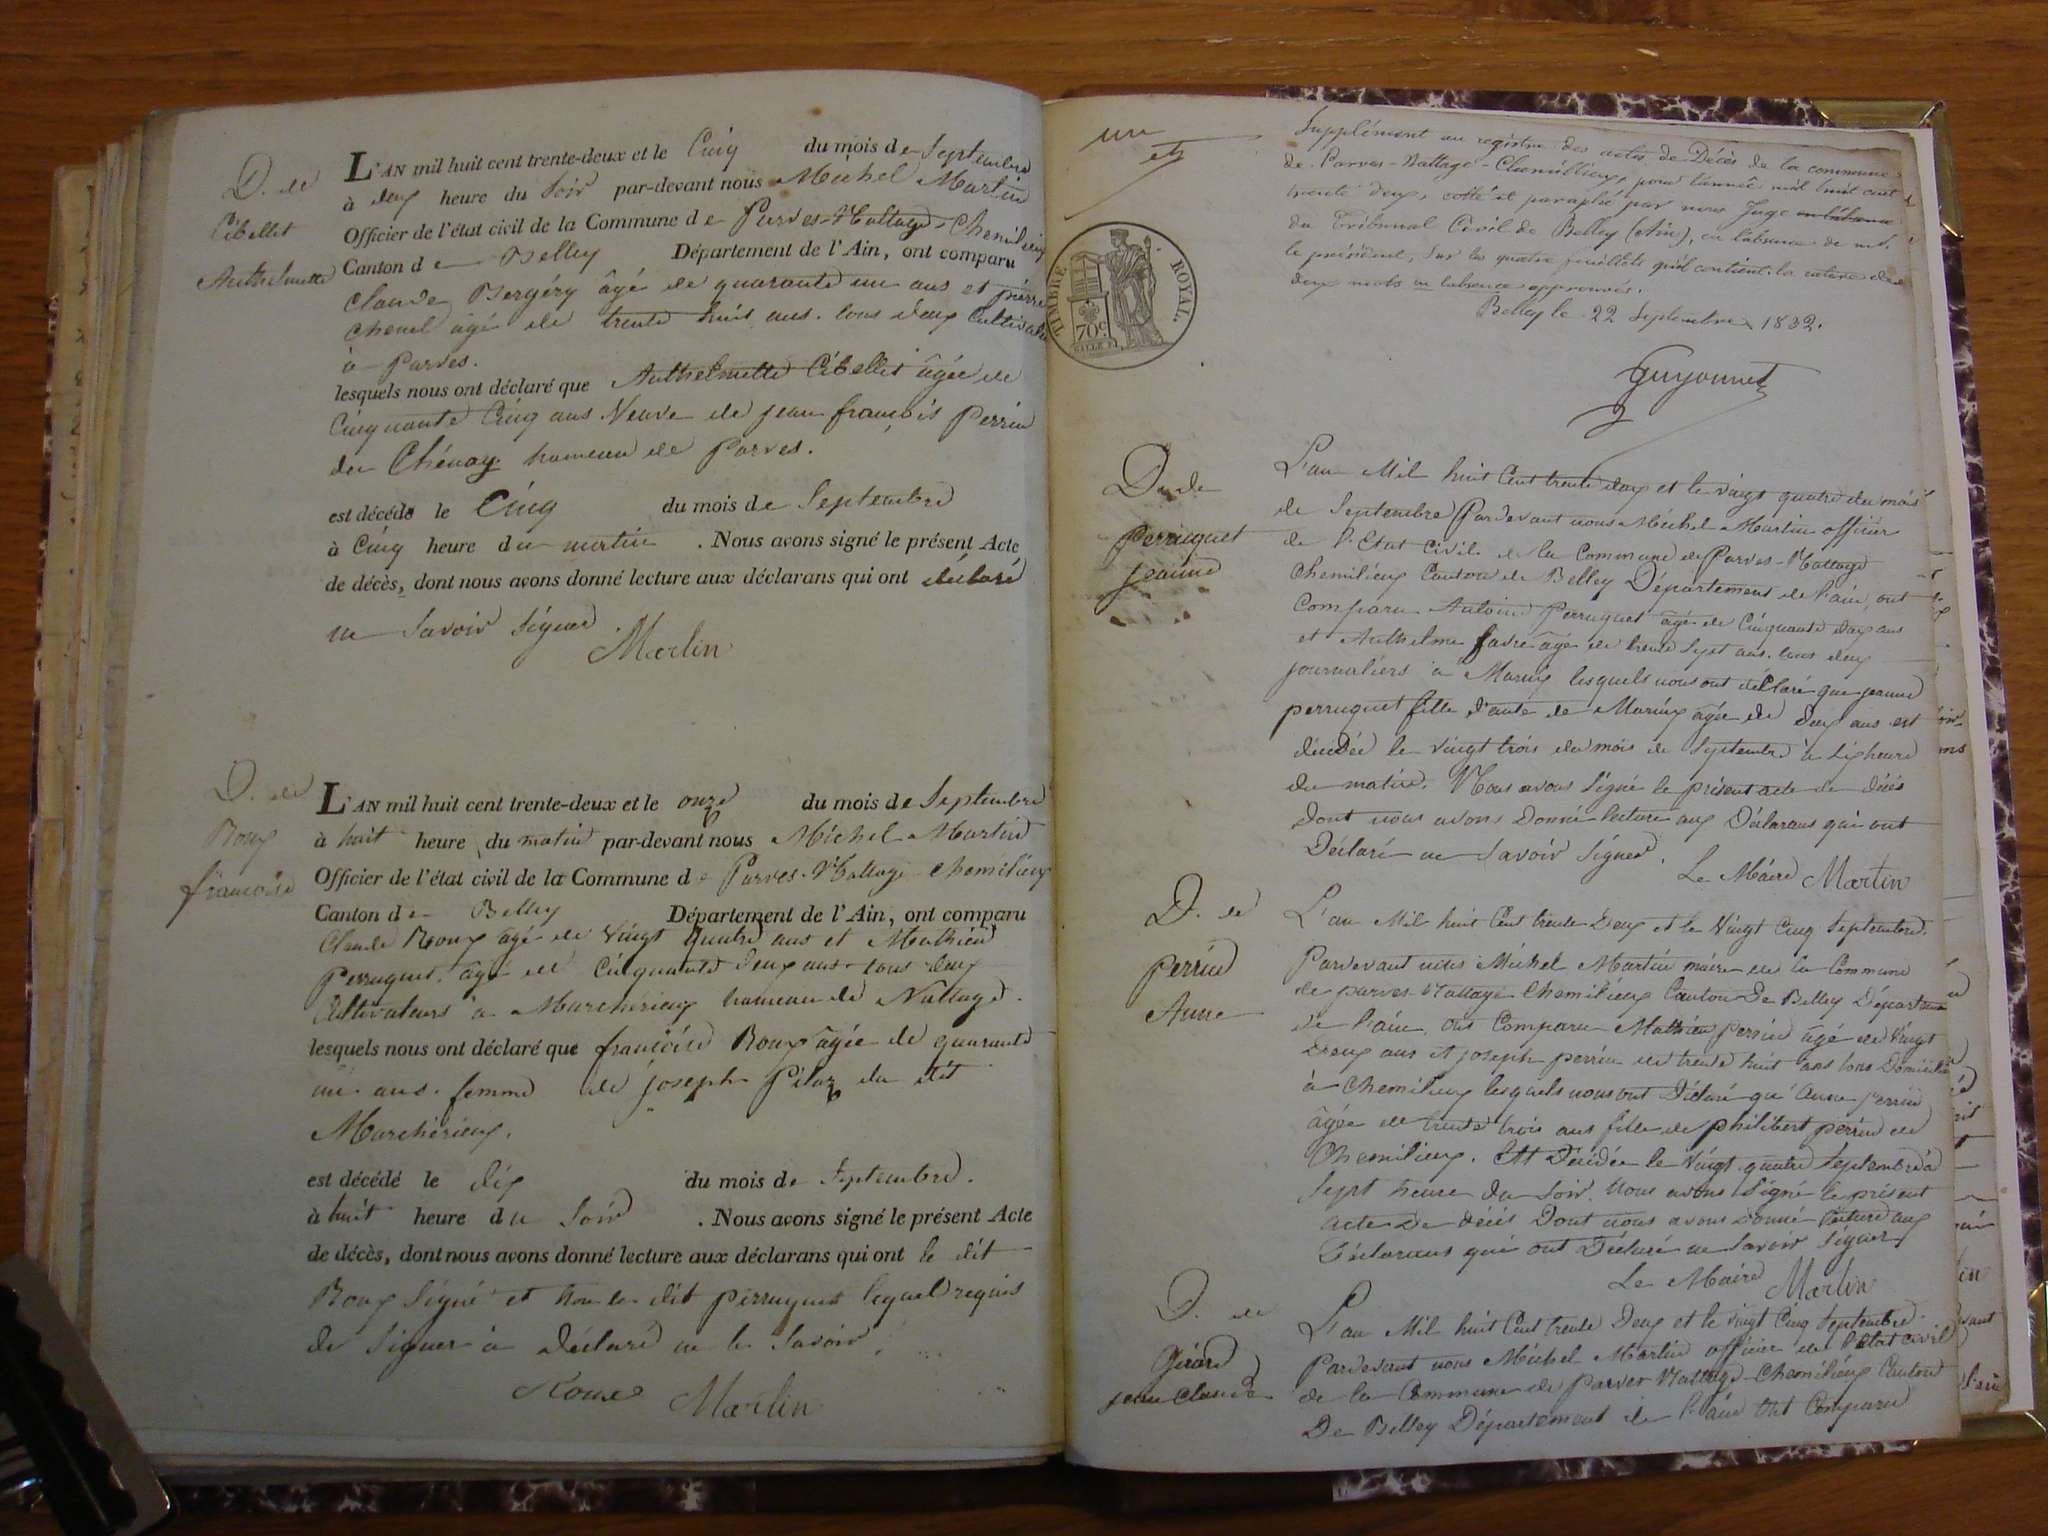 D. de
Cibellet
Anthelmette
L'AN mil huit cent trente-deux et le Cinq du mois de Septembre
à deux heure du Soir par-devant nous Michel Martin
Officier de l'état civil de la Commune de Parves-Nattage-Chemilieux
Canton de Belley Département de l'Ain, ont comparu
Claude Bergéry âgé de quarante un ans et pierre
Chenel âgé de trente huit ans. tous deux Cultivateurs
à Parves.
lesquels nous ont déclaré que Anthelmette Cibellet âgée de
Cinquante Cinq ans Veuve de jean françois Perrin
du Chénay hameau de Parves.
est décédé le Cinq du mois de Septembre
à Cinq heure du matin . Nous avons signé le présent Acte
de décès, dont nous avons donné lecture aux déclarans qui ont déclaré
ne Savoir Signer.
Martin
D. de
Roux
françoise
L'AN mil huit cent trente-deux et le onze du mois de Septembre
à huit heure du matin par-devant nous Michel Martin
Officier de l'état civil de la Commune de Parves-Nattage Chemilieux
Canton de Belley Département de l'Ain, ont comparu
Claude Roux âgé de Vingt quatre ans et Mathieu
Perruquet âgé de Cinquante deux ans tous deux
Cultivateurs à Marchérieux hameau de Nattage.
lesquels nous ont déclaré que françoise Roux âgée de quarante
un ans. femme de joseph Pilaz du dit
Marchérieux.
est décédé le dix du mois de Septembre.
à huit heure du Soir . Nous avons signé le présent Acte
de décès, dont nous avons donné lecture aux déclarans qui ont le dit
Roux Signé et non le dit perruquet lequel requis
de Signer à Déclaré ne le Savoir.
Roux Martin
un
TIMBRE ROYAL.
70c
Supplément au registre des actes de Décès de la commune
de Parves-Nattage-Chemillieux, pour l'année mil huit cent
trente deux, cotté et paraphé par nous Juge en l'absence
du Tribunal Civil de Belley (Ain), en l'absence de mr.
le président, Sur les quatre feuillets qu'il contient. la rature des
deux mots en l'absence approuvés.
Belley le 22 Septembre 1832.
Guyonnet
D. de
Perruquet
jeanne
L'an Mil huit Cent trente deux et le vingt quatre du mois
de Septembre Pardevant nous Michel Martin officier
de l'Etat Civil de la Commune de Parves-Nattage
Chemilieux Canton de Belley Département de l'ain, ont
Comparu Antoine Perruquet âgé de Cinquante deux ans
et Anthelme favre âgé de trente Sept ans. tous deux
journaliers à lesquels nous ont déclaré que jeanne
perruquet fille de âgée de Deux ans est
décédée le vingt trois du mois de Septembre à Six heure
du matin. Nous avons Signé le présent acte de décés
Dont nous avons Donné lecture aux Déclarans qui ont
Déclaré ne Savoir Signer.
Le Maire Martin
D. de
Perrin
Anne
L'an Mil huit Cent trente Deux et le Vingt Cinq Septembre.
Pardevant nous Michel Martin maire de la Commune
de parves-Nattage Chemilieux Canton De Belley Département
de l'ain, ont Comparu Mathieu Perrin âgé de Vingt
Deux ans et joseph perrin de trente huit ans tous Domiciliés
à Chemilieux lesquels nous ont Déclaré qu'Anne perrin
âgée de trente trois ans fille de philibert perrin de
Chemilieux. Est Décédée le Vingt quatre Septembre à
Sept heure du Soir. Nous avons Signé le présent
acte De décès Dont nous avons Donné lecture aux
Déclarans qui ont Déclaré ne Savoir Signer
Le Maire Martin
D. de
Girard
jean Claude
L'an Mil huit Cent trente Deux et le vingt Cinq Septembre.
Pardevant nous Michel Martin officier de l'état civil
de la Commune de Parves Nattage-Chemilieux Canton
De Belley Département de l'ain Ont Comparu